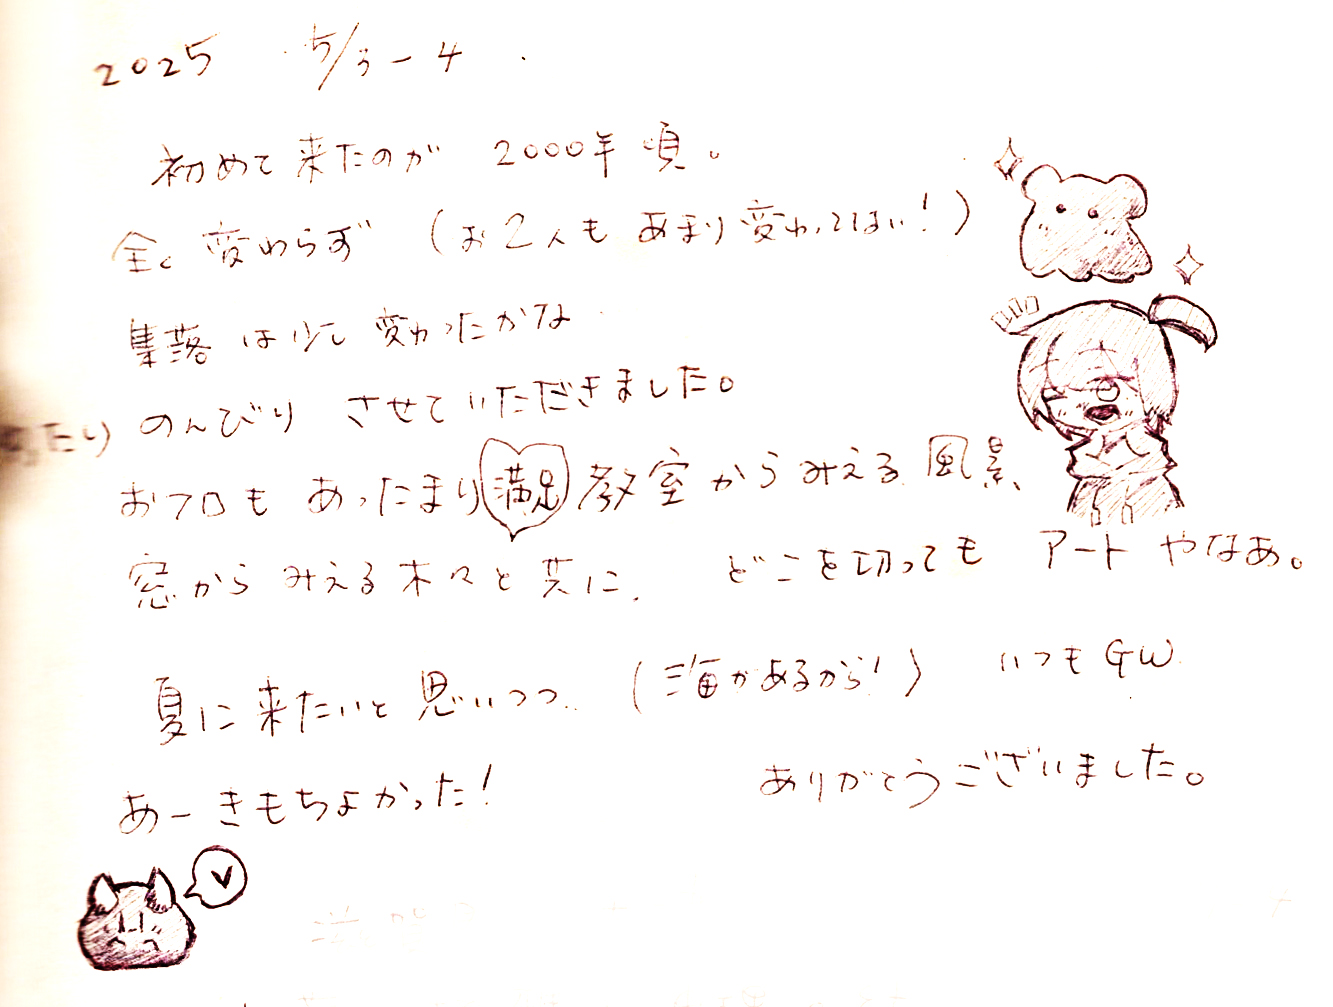 2025 5/3-4
初めて来たのが 2000年頃。
全く変わらず (お2人もあまり変わってない!)
集落は少し変わったかな
のんびり させていただきました。
おフロもあったまり満足 教室からみえる風景、
窓からみえる木々と共に、 どこを切っても アートやなあ。
夏に来たいと思いつつ… (海があるから!) いつもGW
あーきもちよかった! ありがとうございました。